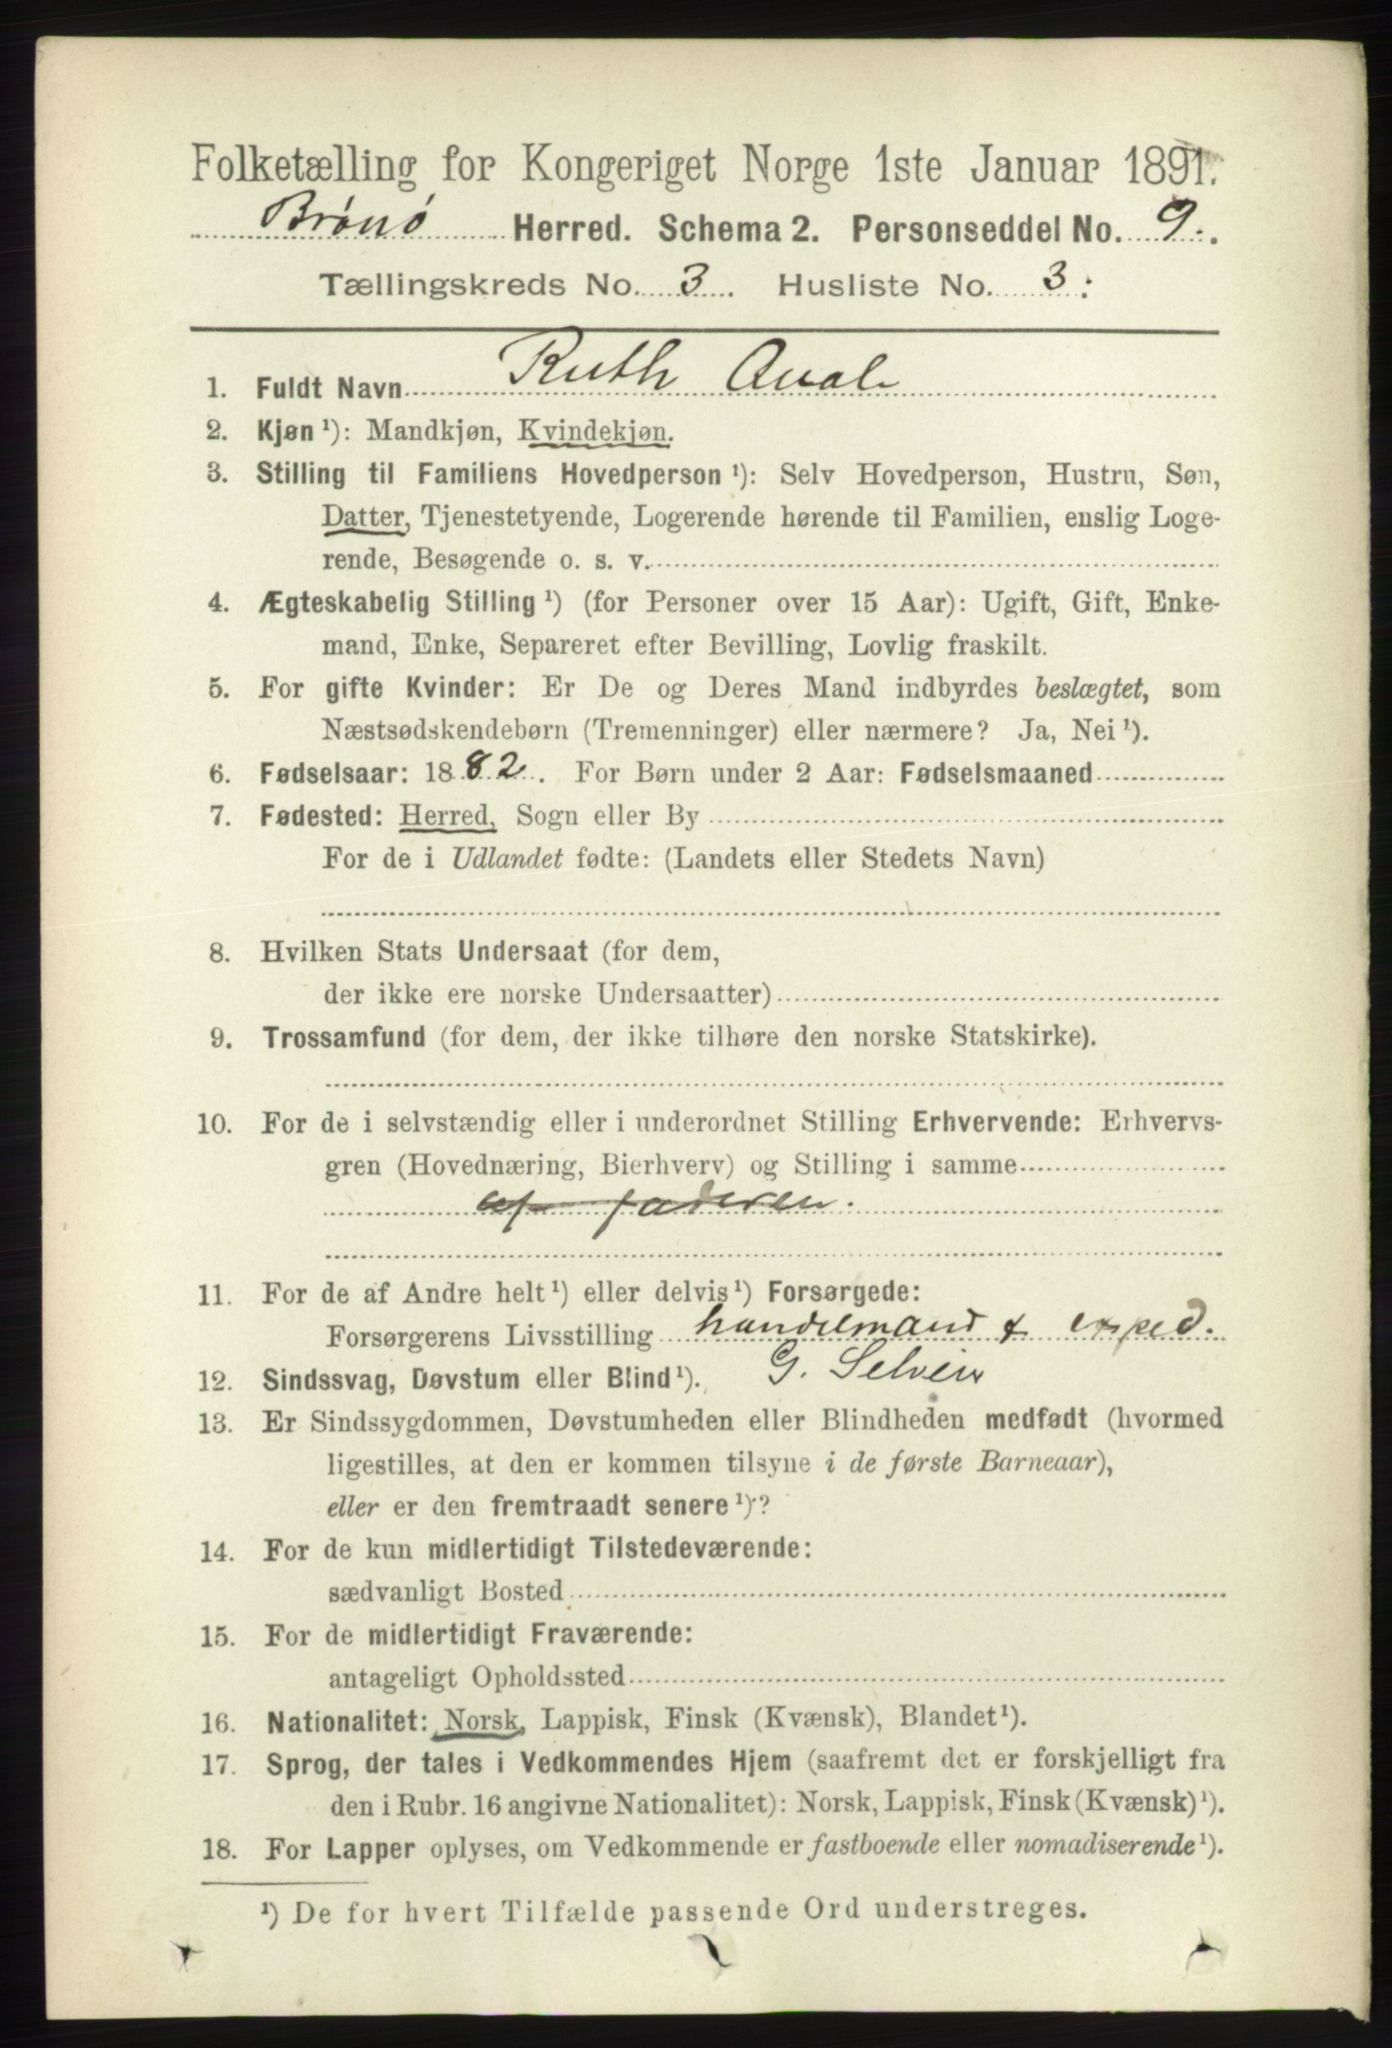 Folketælling for Kongeriget Norge 1ste Januar 1891.
Brönö Herred. Schema 2. Personseddel No. 9.
Tællingskreds No. 3. Husliste No. 3.
1. Fuldt Navn Ruth Qvale
2. Kjøn ¹): Mandkjøn, Kvindekjøn.
3. Stilling til Familiens Hovedperson ¹): Selv Hovedperson, Hustru, Søn,
Datter, Tjenestetyende, Logerende hørende til Familien, enslig Loge-
rende, Besøgende o. s. v.
4. Ægteskabelig Stilling ¹) (for Personer over 15 Aar): Ugift, Gift, Enke-
mand, Enke, Separeret efter Bevilling, Lovlig fraskilt.
5. For gifte Kvinder: Er De og Deres Mand indbyrdes beslægtet, som
Næstsødskendebørn (Tremenninger) eller nærmere? Ja, Nei ¹).
6. Fødselsaar: 1882. For Børn under 2 Aar: Fødselsmaaned
7. Fødested: Herred, Sogn eller By
For de i Udlandet fødte: (Landets eller Stedets Navn)
8. Hvilken Stats Undersaat (for dem,
der ikke ere norske Undersaatter)
9. Trossamfund (for dem, der ikke tilhøre den norske Statskirke).
10. For de i selvstændig eller i underordnet Stilling Erhvervende: Erhvervs-
gren (Hovednæring, Bierhverv) og Stilling i samme
af faderen.
11. For de af Andre helt ¹) eller delvis ¹) Forsørgede:
Forsørgerens Livsstilling handelmand & exped.
G. Selvein
12. Sindssvag, Døvstum eller Blind ¹).
13. Er Sindssygdommen, Døvstumheden eller Blindheden medfødt (hvormed
ligestilles, at den er kommen tilsyne i de første Barneaar),
eller er den fremtraadt senere ¹)?
14. For de kun midlertidigt Tilstedeværende:
sædvanligt Bosted
15. For de midlertidigt Fraværende:
antageligt Opholdssted
16. Nationalitet: Norsk, Lappisk, Finsk (Kvænsk), Blandet ¹).
17. Sprog, der tales i Vedkommendes Hjem (saafremt det er forskjelligt fra
den i Rubr. 16 angivne Nationalitet): Norsk, Lappisk, Finsk (Kvænsk) ¹).
18. For Lapper oplyses, om Vedkommende er fastboende eller nomadiserende ¹).
¹) De for hvert Tilfælde passende Ord understreges.